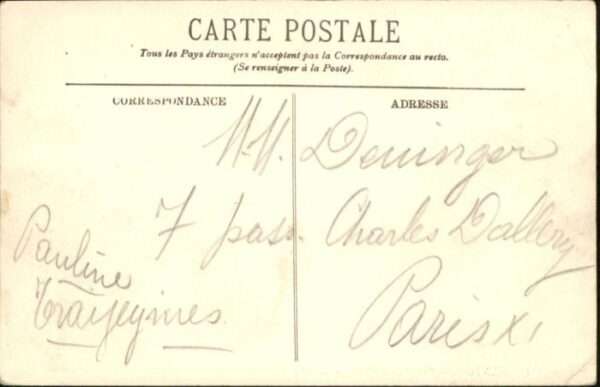 CARTE POSTALE
Tous les Pays étrangers n'acceptent pas la Correspondance au recto.
(Se renseigner à la Poste).
CORRESPONDANCE
ADRESSE
M.M. Deninger
7 pass. Charles Dallery
Paris XI
Pauline